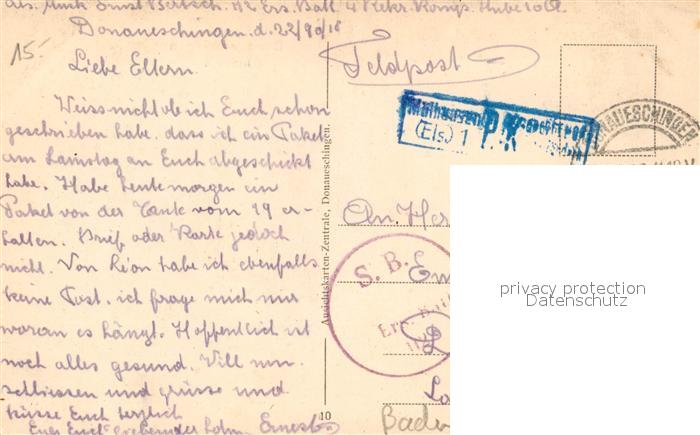 Abs. Musk. Ernst Bertsch. 142 Ers. Batl. 4 Rekr. Komp.
Donaueschingen. d. 22/90/18
15.-
Liebe Eltern.
Feldpost
Weiss nicht ob ich Euch schon
geschrieben habe, dass ich ein Paket
am Samstag an Euch abgeschickt
habe. Habe heute morgen ein
Paket von der Tante vom 19 er-
halten. Brief oder Karte jedoch
nicht. Von Léon habe ich ebenfalls
keine Post. ich frage mich nur
woran es hängt. Hoffentlich ist
noch alles gesund. Will nun
schliessen und grüsse und
küsse Euch herzlich
Euer Euch liebender Sohn. Ernest
Ansichtskarten-Zentrale, Donaueschingen.
10
Mülhausen
(Els.) 1
DONAUESCHINGEN
An. Her
S. B.
Em
Ers.
Baden
privacy protection
Datenschutz